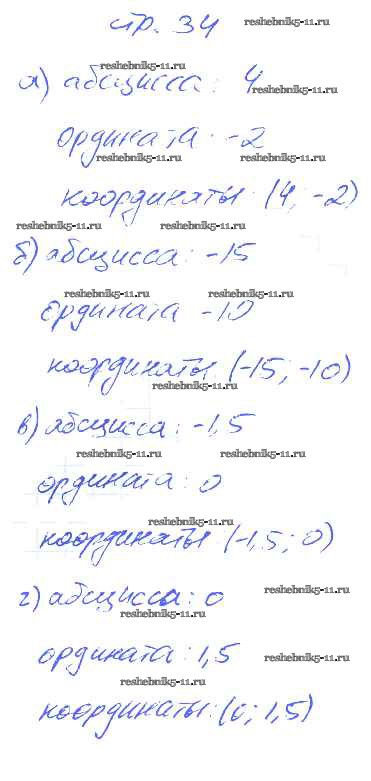 стр. 34
reshebnik5-11.ru
reshebnik5-11.ru
а) абсцисса: 4
reshebnik5-11.ru
ордината: -2
reshebnik5-11.ru reshebnik5-11.ru
координаты: (4; -2)
reshebnik5-11.ru reshebnik5-11.ru
б) абсцисса: -15
reshebnik5-11.ru reshebnik5-11.ru
ордината -10
координаты (-15; -10)
reshebnik5-11.ru
в) абсцисса: -1,5
reshebnik5-11.ru reshebnik5-11.ru
ордината: 0
reshebnik5-11.ru
координаты: (-1,5; 0)
г) абсцисса: 0
reshebnik5-11.ru
reshebnik5-11.ru
ордината: 1,5
reshebnik5-11.ru
reshebnik5-11.ru
координаты: (0; 1,5)